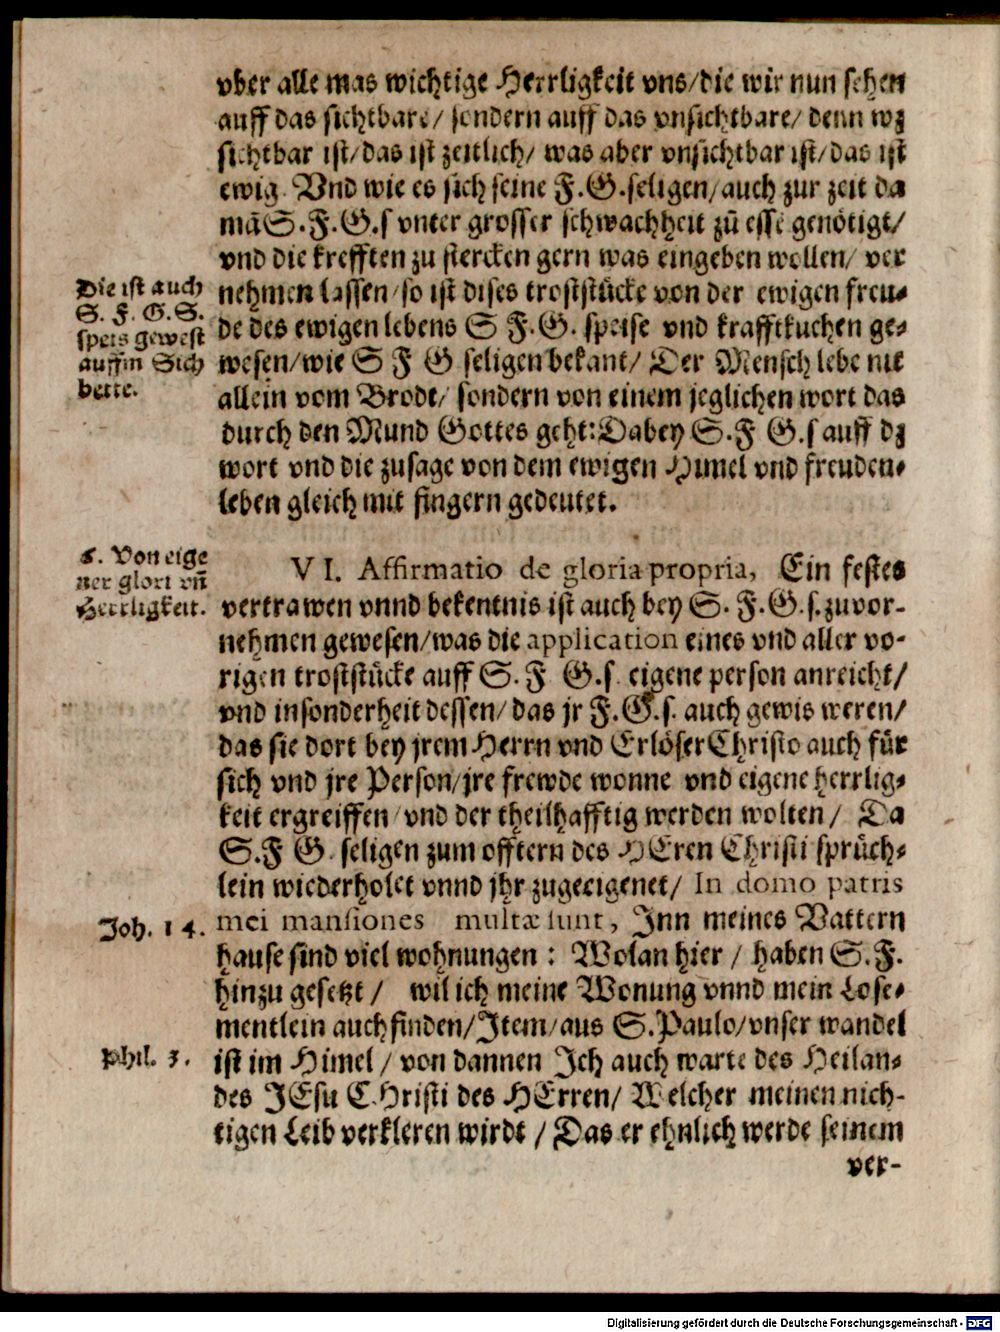 vber alle mas wichtige Herrligkeit vns/die wir nun sehen
auff das sichtbare/ sondern auff das vnsichtbare/ denn wz
sichtbar ist/das ist zeitlich/ was aber vnsichtbar ist/das ist
ewig. Vnd wie es sich seine F.G.seligen/auch zur zeit da
mā S.F.G.s vnter grosser schwachheit zū essē genötigt/
vnd die krefften zu stercken gern was eingeben wollen/ ver
Die ist auch
S. F. G. S.
speis gewest
auffm Sich
bette.
nehmen lassen/so ist dises troststücke von der ewigen freu-
de des ewigen lebens S F.G. speise vnd krafftkuchen ge-
wesen/wie S F G seligen bekant/ Der Mensch lebe nit
allein vom Brodt/ sondern von einem jeglichen wort das
durch den Mund Gottes geht: Dabey S.F G.s auff dz
wort vnd die zusage von dem ewigen Himel vnd freuden-
leben gleich mit fingern gedeutet.
6. Von eige
ner glori vñ
Herrligkeit.
VI. Affirmatio de gloria propria, Ein festes
vertrawen vnnd bekentnis ist auch bey S. F.G.s.zuvor-
nehmen gewesen/was die application eines vnd aller vo-
rigen troststücke auff S.F G.s. eigene person anreicht/
vnd insonderheit dessen/das jr F.G.s. auch gewis weren/
das sie dort bey jrem Herrn vnd Erlöser Christo auch für
sich vnd jre Person/jre frewde wonne vnd eigene herrlig-
keit ergreiffen/vnd der theilhafftig werden wolten/ Da
S.F G. seligen zum offtern des HEren Christi sprüch-
lein wiederholet vnnd jhr zugeeigenet/ In domo patris
Joh. 14.
mei mansiones multæ sunt, Inn meines Vattern
hause sind viel wohnungen : Wolan hier / haben S.F.
hinzu gesetzt / wil ich meine Wonung vnnd mein Lose-
mentlein auch finden/Item/aus S.Paulo/vnser wandel
Phil. 3.
ist im Himel / von dannen Ich auch warte des Heilan-
des JEsu CHristi des HErren/ Welcher meinen nich-
tigen Leib verkleren wirdt / Das er ehnlich werde seinem
ver-
Digitalisierung gefördert durch die Deutsche Forschungsgemeinschaft - DFG